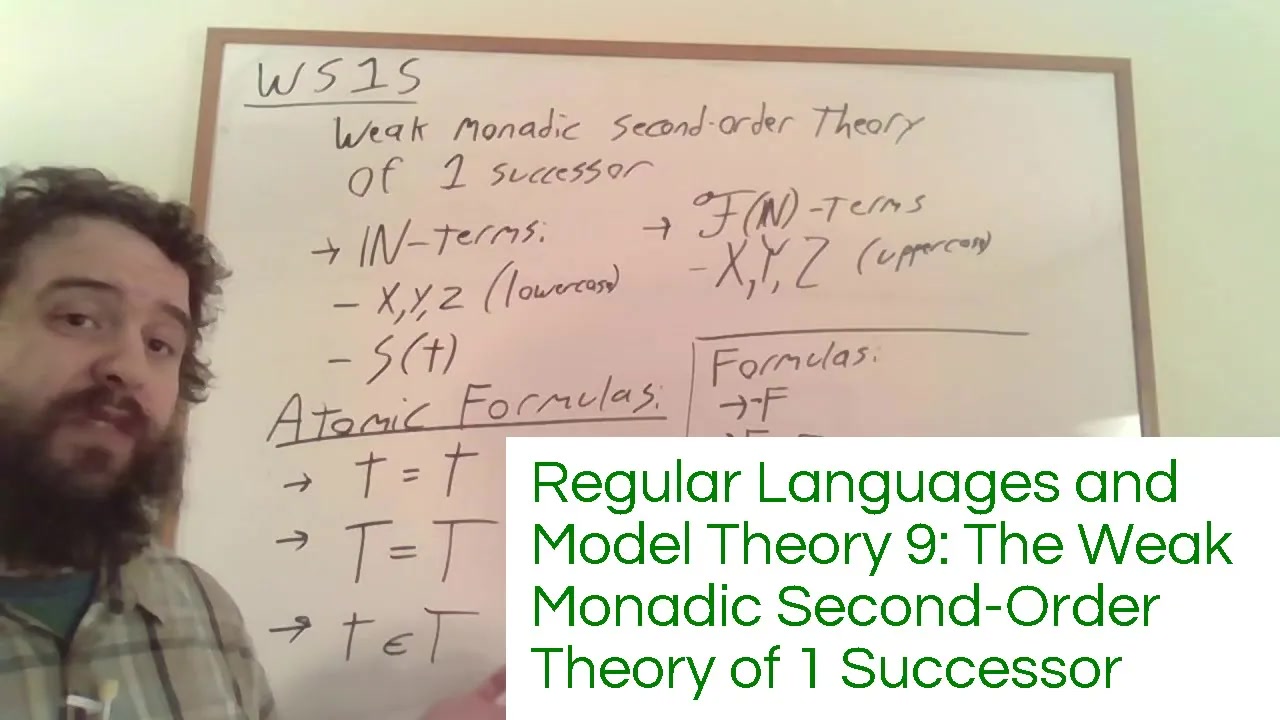 WS1S
Weak monadic second-order Theory
of 1 successor
→ IN-terms:
- x,y,z (lowercase)
- S(t)
→ F(IN)-terms
- X,Y,Z (uppercase)
Atomic Formulas:
→ t = t
→ T = T
→ t ∈ T
Formulas:
→ ¬F
Regular Languages and
Model Theory 9: The Weak
Monadic Second-Order
Theory of 1 Successor